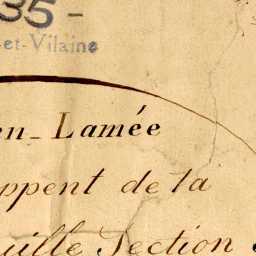 35 -
-et-Vilaine
en-Lamée
ppent de la
uille Section